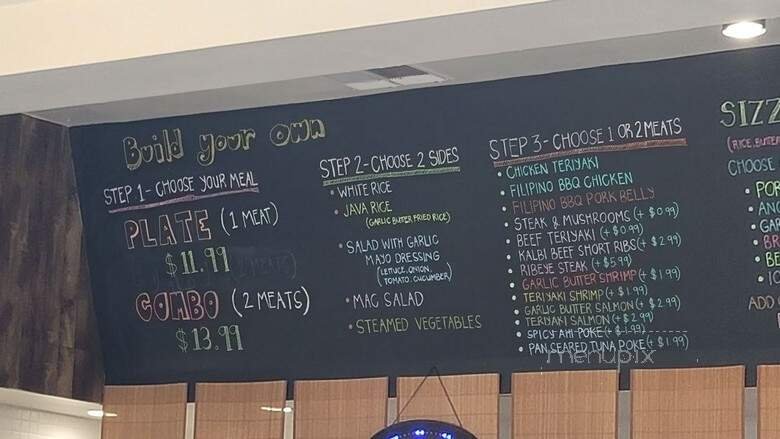 Build your own
STEP 1 - CHOOSE YOUR MEAL
PLATE (1 MEAT)
$11.99
COMBO (2 MEATS)
$13.99
STEP 2 - CHOOSE 2 SIDES
• WHITE RICE
• JAVA RICE
(GARLIC BUTTER FRIED RICE)
• SALAD WITH GARLIC
MAYO DRESSING
(LETTUCE, ONION,
TOMATO, CUCUMBER)
• MAC SALAD
• STEAMED VEGETABLES
STEP 3 - CHOOSE 1 OR 2 MEATS
• CHICKEN TERIYAKI
• FILIPINO BBQ CHICKEN
• FILIPINO BBQ PORK BELLY
• STEAK & MUSHROOMS (+ $0.99)
• BEEF TERIYAKI (+ $0.99)
• KALBI BEEF SHORT RIBS (+ $2.99)
• RIBEYE STEAK (+ $5.99)
• GARLIC BUTTER SHRIMP (+ $1.99)
• TERIYAKI SHRIMP (+ $1.99)
• GARLIC BUTTER SALMON (+ $2.99)
• TERIYAKI SALMON (+ $2.99)
• SPICY AHI POKE (+ $1.99)
• PAN SEARED TUNA POKE (+ $1.99)
menupix
SIZZ
(RICE, BUTTER
CHOOSE
• POR
• AN
• GAR
• BR
• BE
ADD